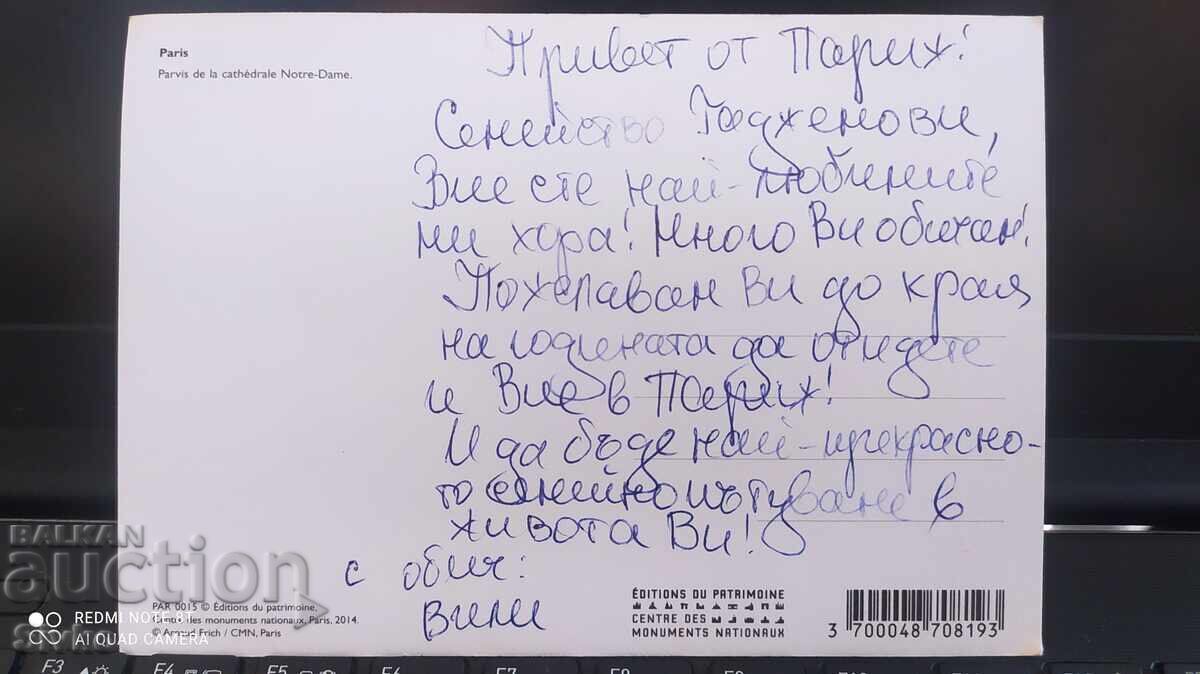 Paris
Parvis de la cathédrale Notre-Dame.
Привет от Париж!
Семейство Гадженови,
Вие сте най-любимите
ми хора! Много Ви обичам!
Пожелавам Ви до края
на годината да отидете
и Вие в Париж!
И да бъде най-прекрасно-
то семейно пътуване в
живота Ви!
с обич:
Вили
PAR 0015 © Éditions du patrimoine,
Centre des monuments nationaux, Paris, 2014.
© Arnaud Frich / CMN, Paris
ÉDITIONS DU PATRIMOINE
CENTRE DES
MONUMENTS NATIONAUX
3 700048 708193
BALKAN
auction
REDMI NOTE 8T
AI QUAD CAMERA
F3
F4
F5
F6
F7
F8
F9